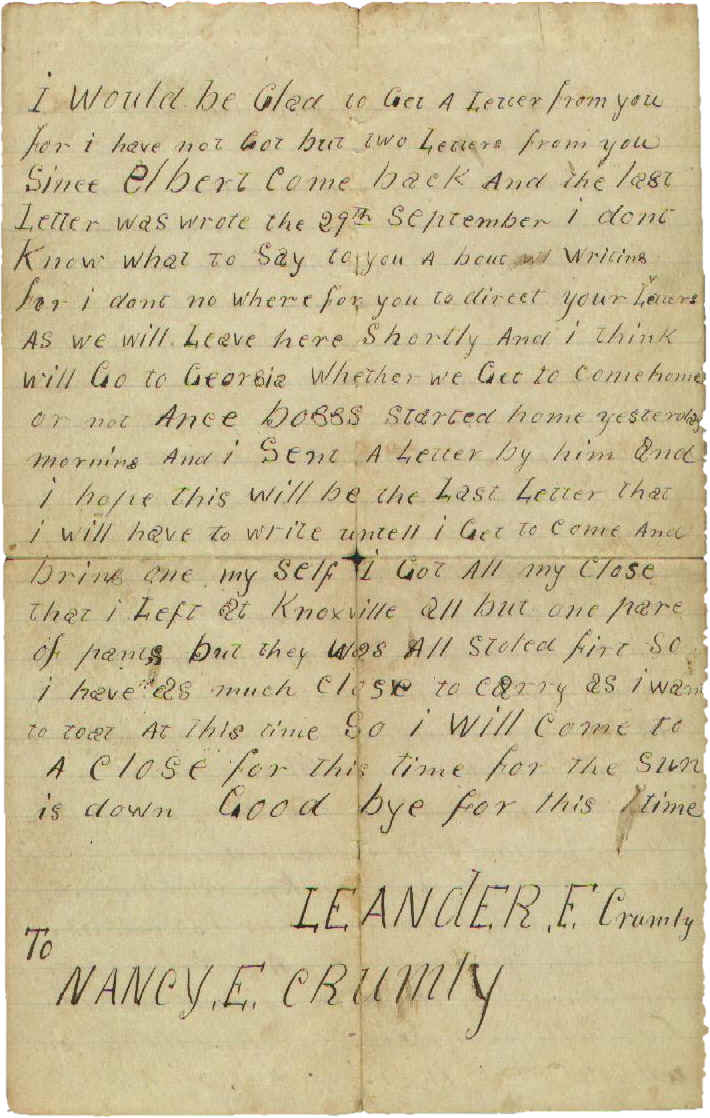 I Would be Glad to Get A Letter from you
for i have not Got but two Letters from you
Since Elbert Come back And the last
Letter was wrote the 29th September i dont
Know what to Say to you A bout Writing
for i dont no where for you to direct your Letters
As we will Leave here Shortly And i think
will Go to Georgia Whether we Get to come home
or not Ance boggs Started home yesterday
morning And i Sent A Letter by him And
i hope this will be the Last Letter that
i will have to write untell i Get to Come And
bring one my Self I Got All my Close
that i Left at Knoxville all but one pare
of pants but they was All Stoled firt So
i have as much Close to carry as i want
to toat At this time So i Will Come to
A Close for this time for the Sun
is down Good bye for this time
LEANdER. E. Crumly
To
NANCY. E. CRumly